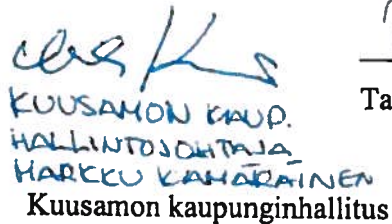 Ta
KUUSAMON KAUP.
HALLINTOJOHTAJA
HARKKU KAMÄRÄINEN
Kuusamon kaupunginhallitus